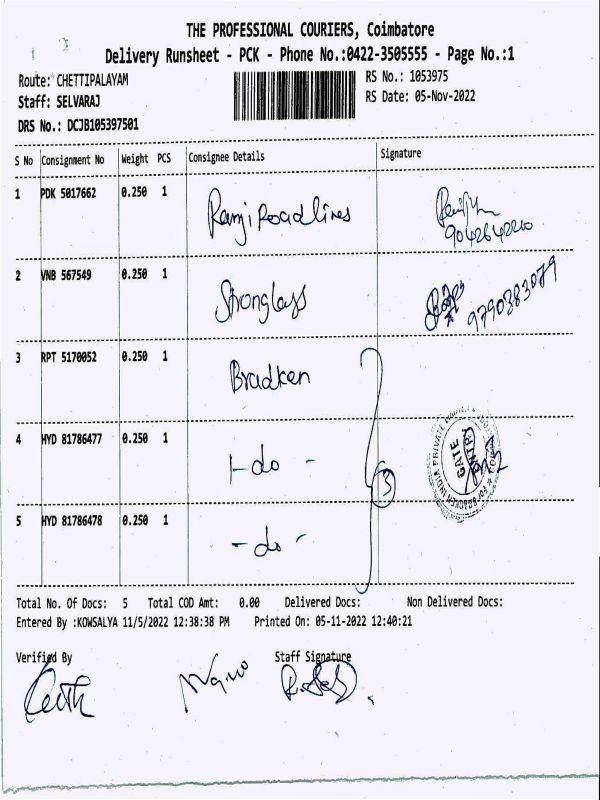 THE PROFESSIONAL COURIERS, Coimbatore
Delivery Runsheet - PCK - Phone No.:0422-3505555 - Page No.:1
Route: CHETTIPALAYAM
RS No.: 1053975
Staff: SELVARAJ
RS Date: 05-Nov-2022
DRS No.: DCJB105397501
S No Consignment No Weight PCS Consignee Details Signature
1 PDK 5017662 0.250 1 Ramji Roadlines
9042642210
2 VNB 567549 0.250 1 9790383079
3 RPT 5170052 0.250 1 Bradken
4 HYD 81786477 0.250 1 -do-
3
GATE ENTRY
5 HYD 81786478 0.250 1 -do-
Total No. Of Docs: 5 Total COD Amt: 0.00 Delivered Docs: Non Delivered Docs:
Entered By :KOWSALYA 11/5/2022 12:38:38 PM Printed On: 05-11-2022 12:40:21
Verified By Staff Signature